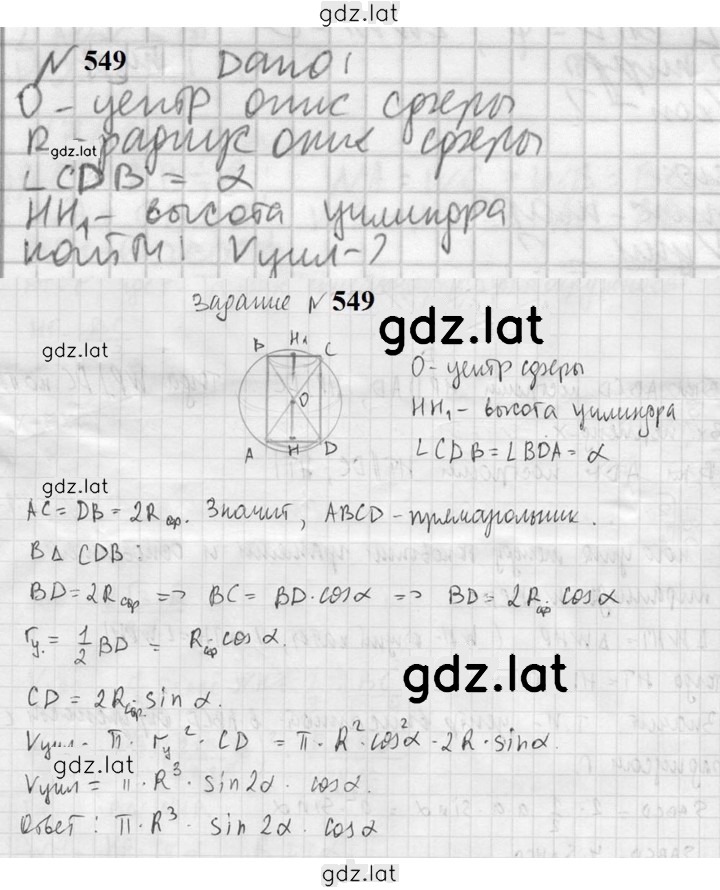 gdz.lat
N 549 Дано:
O - центр опис сферы
R - радиус опис сферы
gdz.lat
∠CDB = α
HH₁ - высота цилиндра
найти: Vцил-?
Задание N 549
gdz.lat
gdz.lat
B H₁ C
O
A H D
O - центр сферы
HH₁ - высота цилиндра
∠CDB = ∠BDA = α
gdz.lat
AC = DB = 2Rсф. Значит, ABCD - прямоугольник.
В Δ CDB:
BD = 2Rсф => BC = BD · cosα => BD = 2Rсф cosα
rц. = 1/2 BD = Rсф cosα.
gdz.lat
CD = 2Rсф. sin α.
Vцил - π · rц² · CD = π · R² · cos²α · 2R · sinα.
gdz.lat
Vцил = π · R³ · sin2α · cosα.
Ответ: π · R³ · sin 2α · cosα
gdz.lat